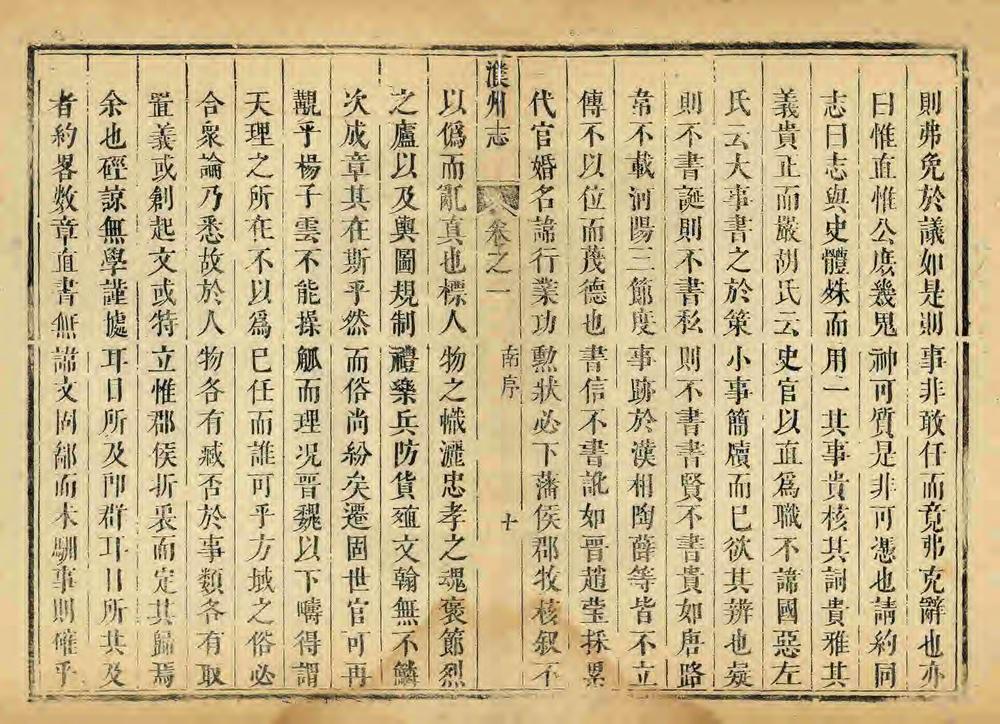 則弗免於議如是則事非敢任而竟弗克辭也亦
曰惟直惟公庶幾鬼神可質是非可憑也請約同
志曰志與史體殊而用一其事貴核其詞貴雅其
義貴正而嚴胡氏云史官以直爲職不諱國惡左
氏云大事書之於策小事簡牘而已欲其辨也疑
則不書誕則不書私則不書書賢不書貴如唐路
常不載河陽三節度事跡於漢相陶薛等皆不立
傳不以位而茂德也書信不書訛如晉趙瑩採累
代官婚名諱行業功勲狀必下藩侯郡牧核叙不
濮州志 卷之一 南序 十
以僞而亂真也標人物之幟灑忠孝之魂褒節烈
之廬以及輿圖規制禮樂兵防貨殖文翰無不鱗
次成章其在斯乎然而俗尚紛矣遷固世官可再
覯乎楊子雲不能操觚而理况晉魏以下疇得謂
天理之所在不以爲已任而誰可乎方域之俗必
合衆論乃悉故於人物各有臧否於事類各有取
置義或創起文或特立惟郡侯折衷而定其歸焉
余也硜諒無學謹據耳目所及卽群耳目所共及
者約畧數章直書無諱文固鄙而未馴事則確乎